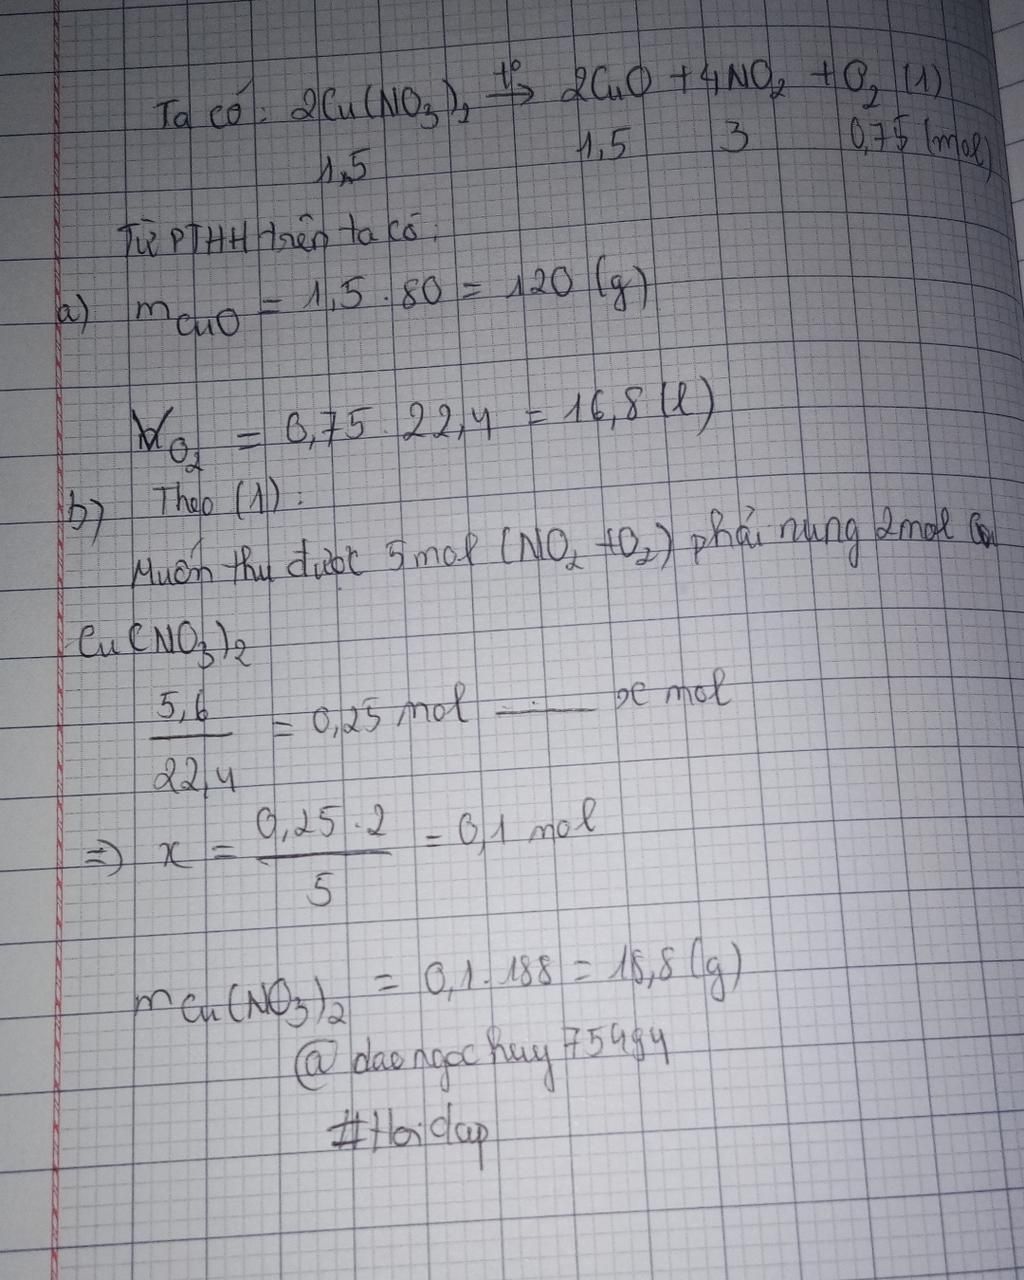 Ta có: 2Cu(NO3)2 t° → 2CuO + 4NO2 + O2 (1)
1,5 1,5 3 0,75 (mol)
Từ PTHH trên ta có:
a) mCuO = 1,5 . 80 = 120 (g)
VO2 = 0,75 . 22,4 = 16,8 (l)
b) Theo (1):
Muốn thu được 5 mol (NO2 + O2) phải nung 2mol
Cu(NO3)2
5,6/22,4 = 0,25 mol —..— x mol
=> x = 0,25 . 2 / 5 = 0,1 mol
mCu(NO3)2 = 0,1 . 188 = 18,8 (g)
@daongochuy75494
#Hoidap